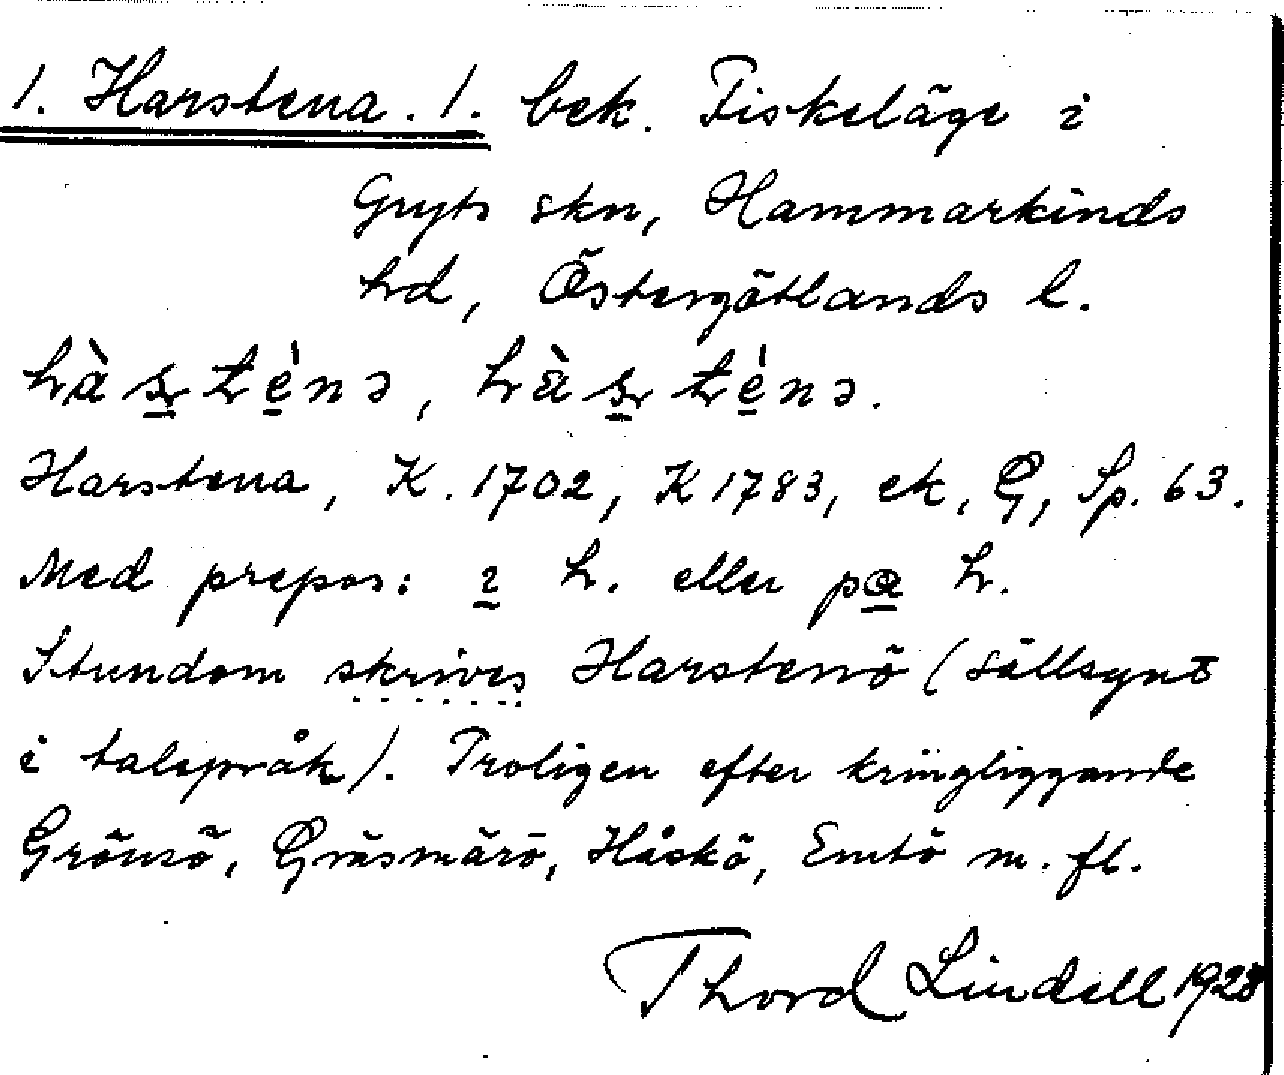 1. Harstena. 1. bek. Fiskeläge i
Gryts skn, Hammarkinds
hd, Östergötlands l.
Harstena, K. 1702, K 1783, ek, G, Sp. 63.
Med prepos: ı h. eller pa h.
Stundom skrives Harstenö (sällsynt
i talspråk). Troligen efter kringliggande
Grönsö, Gräsmärö, Håskö, Emtö m. fl.
Thord Lindell 1928